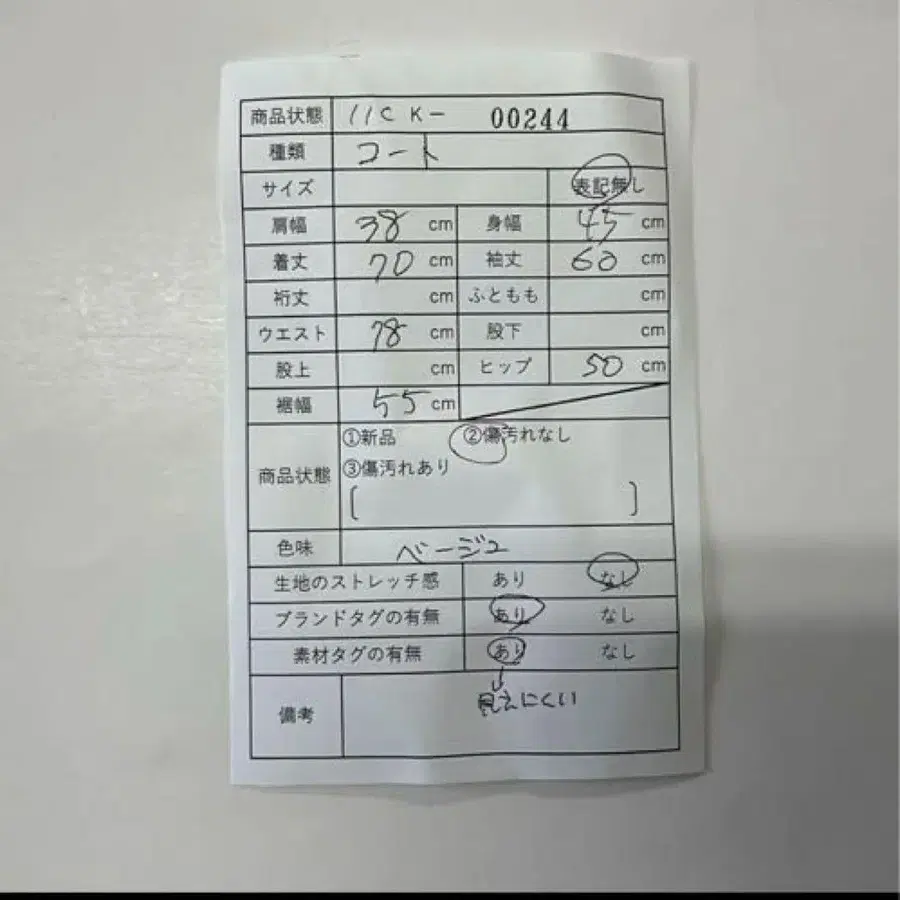 商品状態 11CK- 00244
種類 コート
サイズ 表記無し
肩幅 38 cm 身幅 45 cm
着丈 70 cm 袖丈 60 cm
裄丈 cm ふともも cm
ウエスト 78 cm 股下 cm
股上 cm ヒップ 50 cm
裾幅 55 cm
商品状態 ①新品 ②傷汚れなし
③傷汚れあり
[ ]
色味 ベージュ
生地のストレッチ感 あり なし
ブランドタグの有無 あり なし
素材タグの有無 あり なし
備考 見えにくい